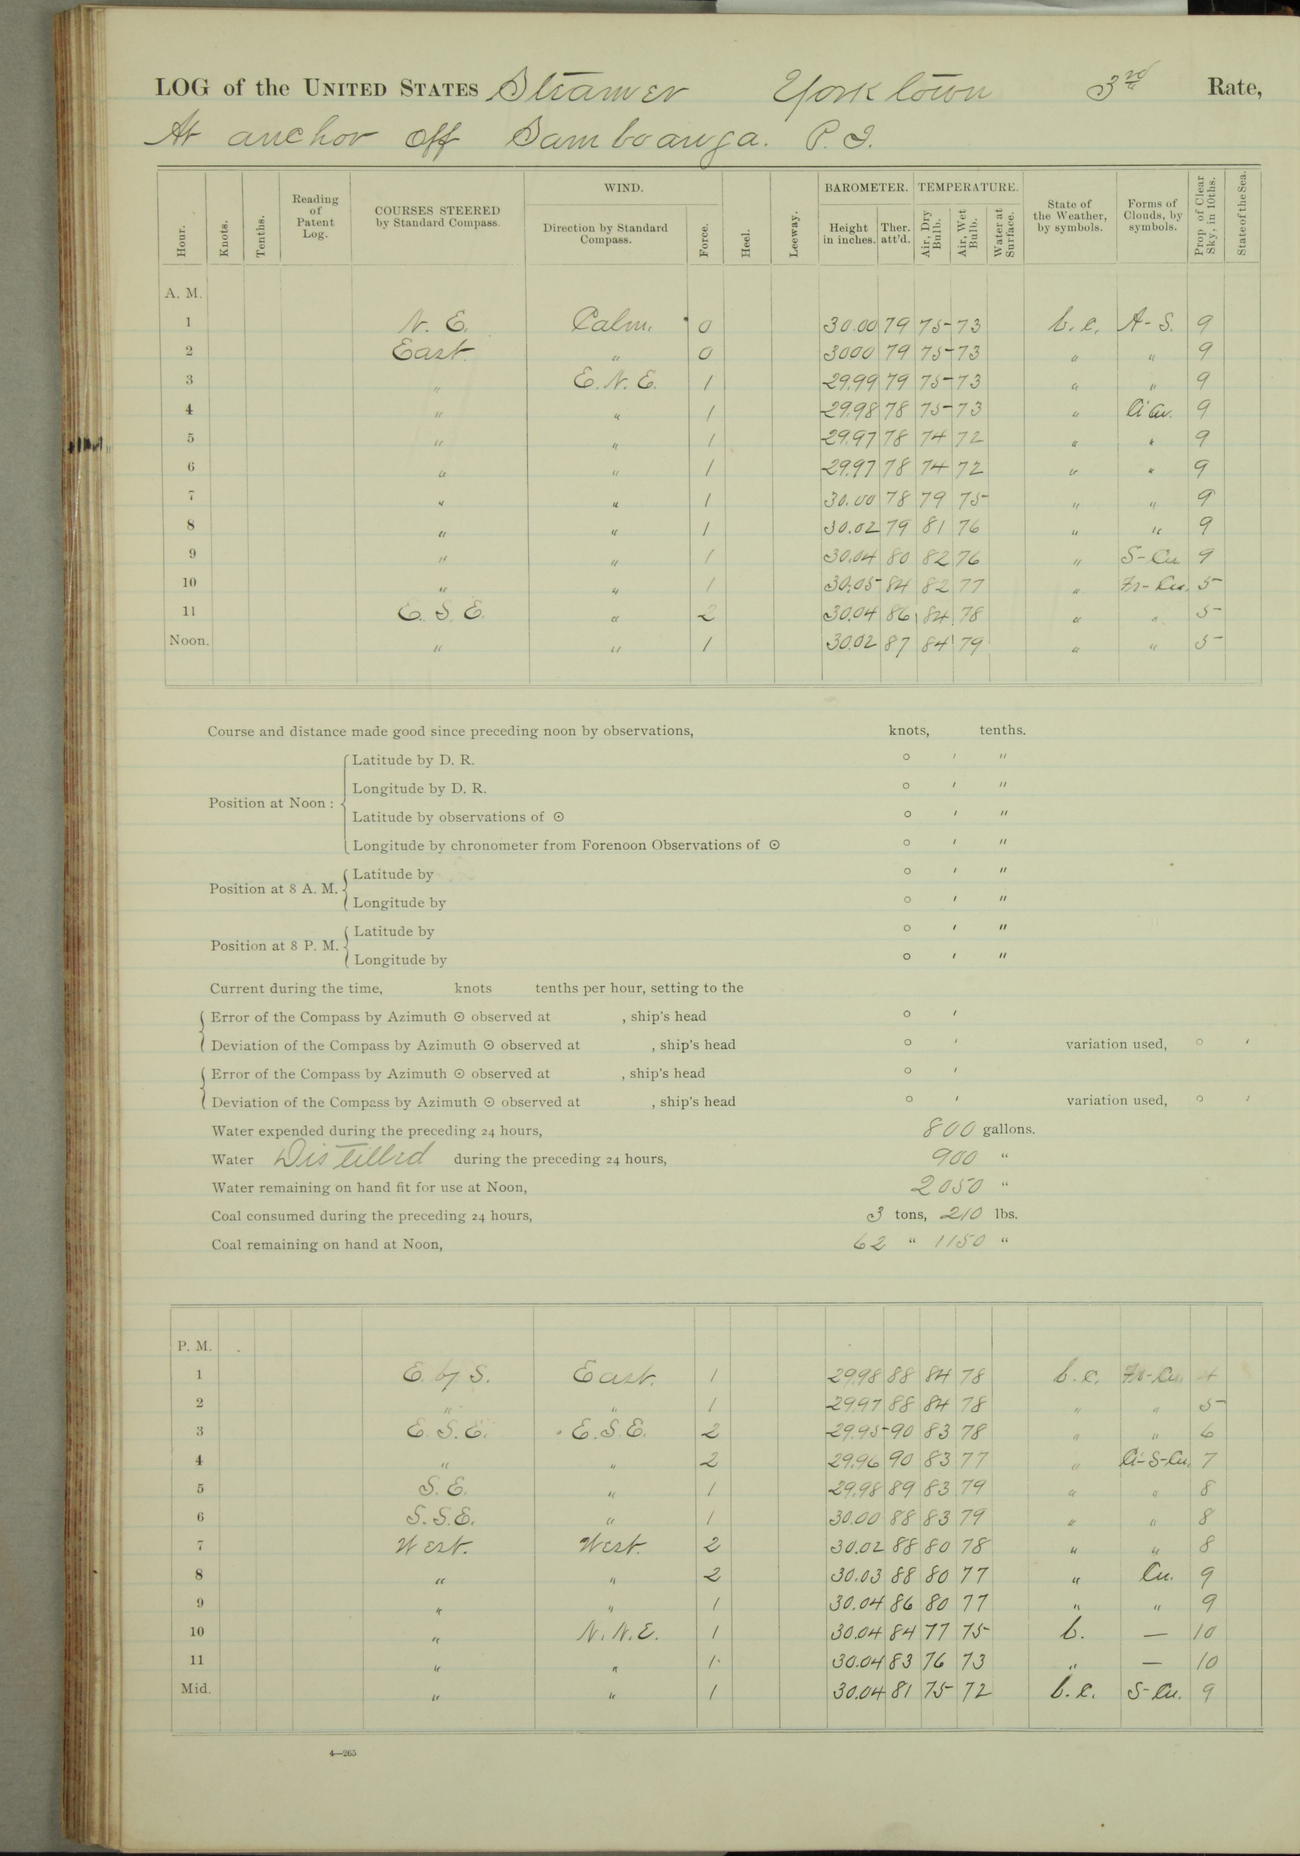 LOG of the UNITED STATES Steamer Yorktown 3rd Rate,
At anchor off Samboanga. P. I.
Hour. Knots. Tenths. Reading of Patent Log. COURSES STEERED by Standard Compass. WIND. Direction by Standard Compass. Force. Heel. Leeway. BAROMETER. Height in inches. Ther. att'd. TEMPERATURE. Air, Dry Bulb. Air, Wet Bulb. Water at Surface. State of the Weather, by symbols. Forms of Clouds, by symbols. Prop of Clear Sky, in 10ths. State of the Sea.
A. M.
1 N. E. Calm. 0 30.00 79 75 73 b.c. A-S. 9
2 East. " 0 3000 79 75 73 " " 9
3 " E.N.E. 1 29.99 79 75 73 " " 9
4 " " 1 29.98 78 75 73 " Ci Cu. 9
5 " " 1 29.97 78 74 72 " " 9
6 " " 1 29.97 78 74 72 " " 9
7 " " 1 30.00 78 79 75 " " 9
8 " " 1 30.02 79 81 76 " " 9
9 " " 1 30.04 80 82 76 " S-Cu 9
10 " " 1 30.05 84 82 77 " Fr-Cu. 5
11 E. S. E. " 2 30.04 86 84 78 " " 5
Noon. " " 1 30.02 87 84 79 " " 5
Course and distance made good since preceding noon by observations, knots, tenths.
Position at Noon : Latitude by D. R. ° ′ ″
Longitude by D. R. ° ′ ″
Latitude by observations of ☉ ° ′ ″
Longitude by chronometer from Forenoon Observations of ☉ ° ′ ″
Position at 8 A. M. Latitude by ° ′ ″
Longitude by ° ′ ″
Position at 8 P. M. Latitude by ° ′ ″
Longitude by ° ′ ″
Current during the time, knots tenths per hour, setting to the
Error of the Compass by Azimuth ☉ observed at , ship's head ° ′
Deviation of the Compass by Azimuth ☉ observed at , ship's head ° ′ variation used, ° ′
Error of the Compass by Azimuth ☉ observed at , ship's head ° ′
Deviation of the Compass by Azimuth ☉ observed at , ship's head ° ′ variation used, ° ′
Water expended during the preceding 24 hours, 800 gallons.
Water Distilled during the preceding 24 hours, 900 "
Water remaining on hand fit for use at Noon, 2050 "
Coal consumed during the preceding 24 hours, 3 tons, 210 lbs.
Coal remaining on hand at Noon, 62 " 1150 "
P. M.
1 E. by S. East. 1 29.98 88 84 78 b.c. Fr-Cu 4
2 " " 1 29.97 88 84 78 " " 5
3 E. S. E. E.S.E. 2 29.95 90 83 78 " " 6
4 " " 2 29.96 90 83 77 " Ci-S-Cu. 7
5 S. E. " 1 29.98 89 83 79 " " 8
6 S. S. E. " 1 30.00 88 83 79 " " 8
7 West. West. 2 30.02 88 80 78 " " 8
8 " " 2 30.03 88 80 77 " Cu. 9
9 " " 1 30.04 86 80 77 " " 9
10 " N. N. E. 1 30.04 84 77 75 b. — 10
11 " " 1 30.04 83 76 73 " — 10
Mid. " " 1 30.04 81 75 72 b.c. S-Cu. 9
4—265